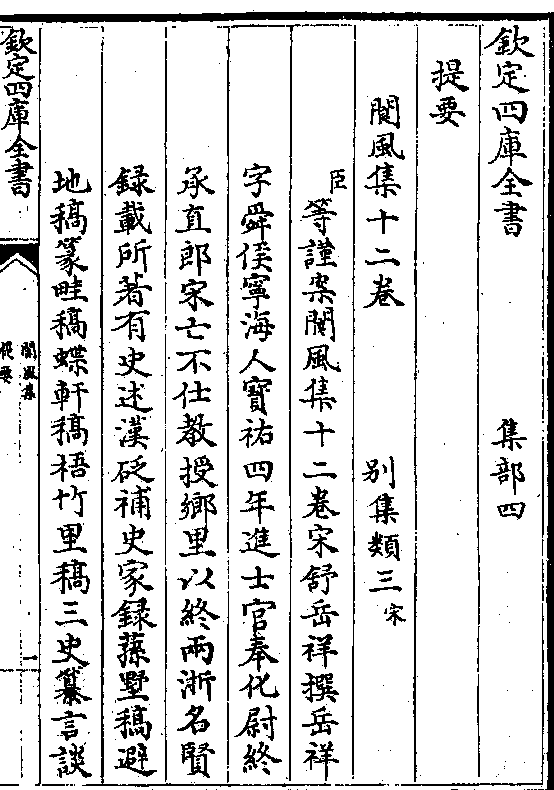 欽定四庫全書 集部四
提要
閬風集十二卷 别集類三宋
臣等謹案閬風集十二卷宋舒岳祥撰岳祥
字舜侯寧海人寶祐四年進士官奉化尉終
承直郎宋亡不仕教授鄉里以終兩浙名賢
録載所著有史述漢砭補史家録蓀墅稿避
地稿篆畦稿蝶軒稿梧竹里稿三史纂言談
欽定四庫全書
閬風集
提要
一